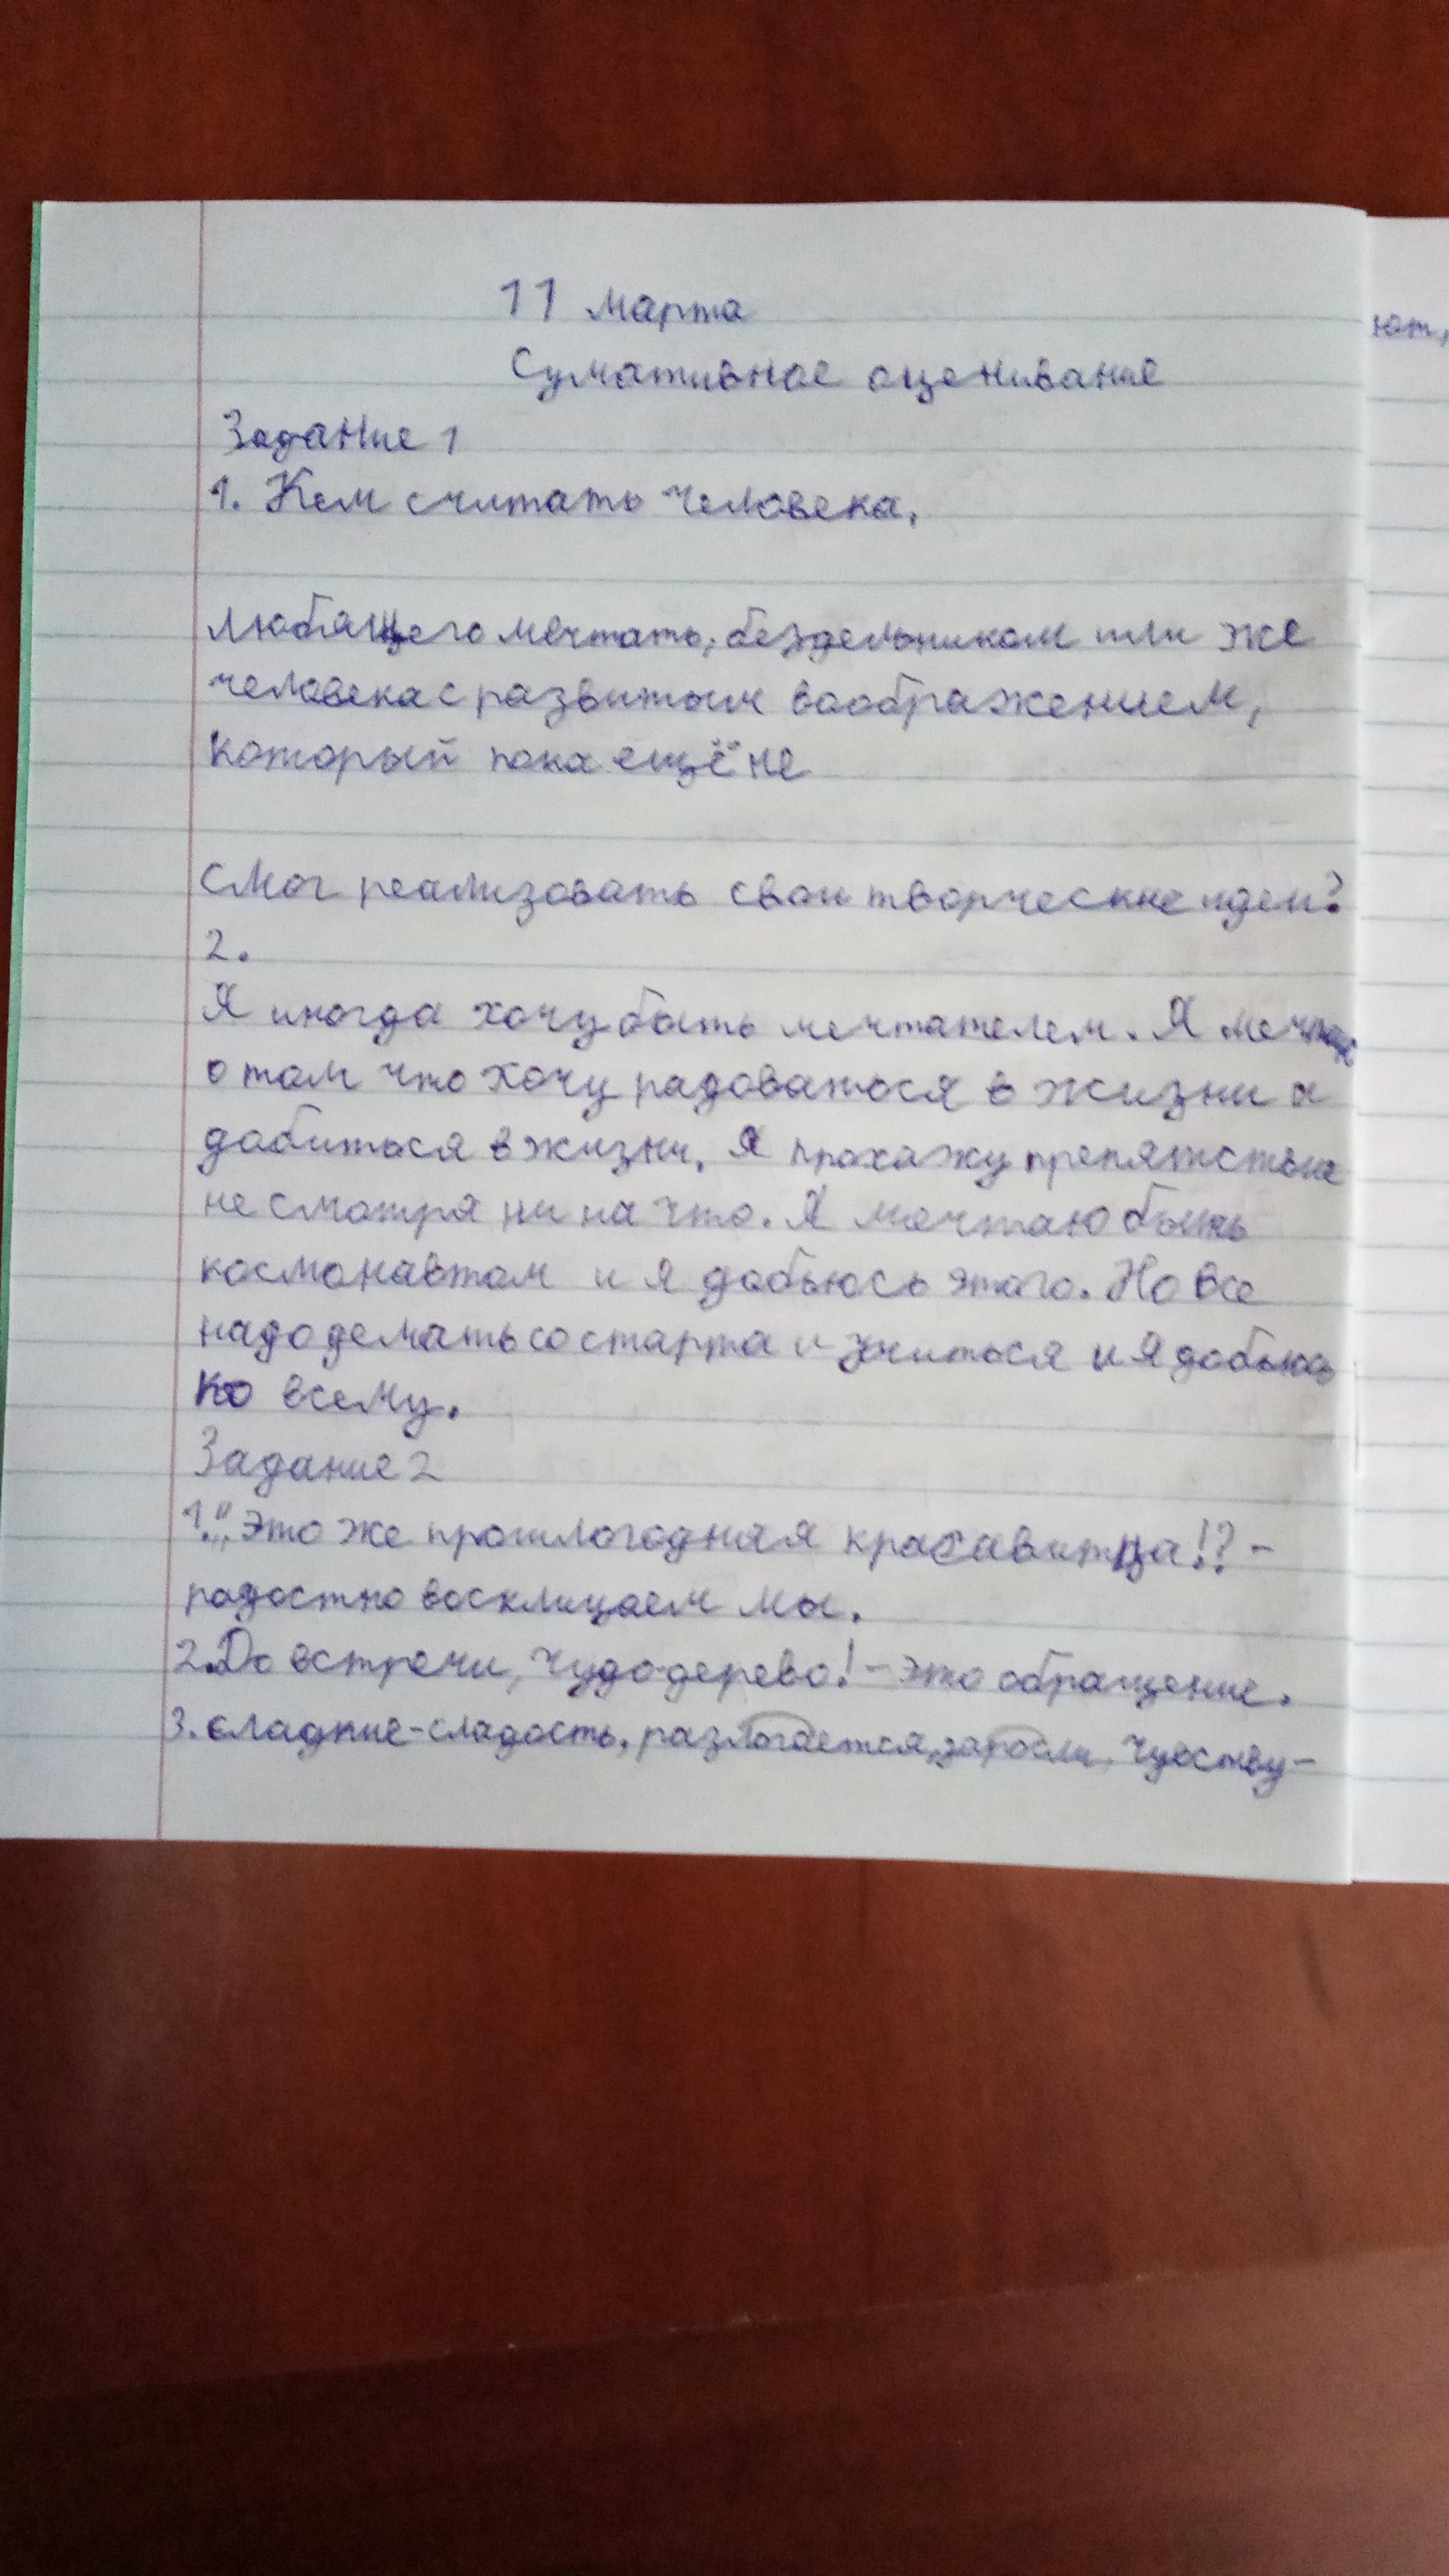 11 марта
Сумативное оценивание
Задание 1
1. Кем считать человека,
любящего мечтать, бездельником или же
человека с развитым воображением,
который пока ещё не
смог реализовать свои творческие идеи?
2.
Я иногда хочу быть мечтателем. Я мечтаю
о том что хочу радоваться в жизни и
добиться в жизни. Я прохажу препятствие
не смотря ни на что. Я мечтаю быть
космонавтом и я добьюсь этого. Но все
надо делать со старта и учиться и я добьюсь
ко всему.
Задание 2
1. "Это же прошлогодняя красавитца!? -
радостно восклицаем мы.
2. До встречи, чудо дерево! - это обращение.
3. сладкие-сладость, разлогается, заросли, чувству-
ют,